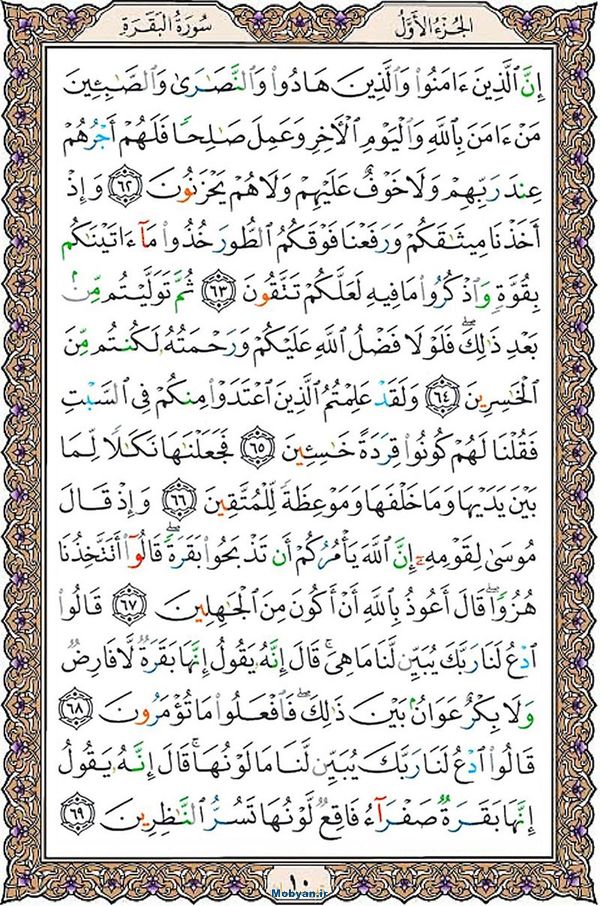 الجزء الأول
سورة البقرة
إِنَّ ٱلَّذِينَ ءَامَنُوا۟ وَٱلَّذِينَ هَادُوا۟ وَٱلنَّصَـٰرَىٰ وَٱلصَّـٰبِـِٔينَ
مَنْ ءَامَنَ بِٱللَّهِ وَٱلْيَوْمِ ٱلْـَٔاخِرِ وَعَمِلَ صَـٰلِحًا فَلَهُمْ أَجْرُهُمْ
عِندَ رَبِّهِمْ وَلَا خَوْفٌ عَلَيْهِمْ وَلَا هُمْ يَحْزَنُونَ ﴿٦٢﴾ وَإِذْ
أَخَذْنَا مِيثَـٰقَكُمْ وَرَفَعْنَا فَوْقَكُمُ ٱلطُّورَ خُذُوا۟ مَآ ءَاتَيْنَـٰكُم
بِقُوَّةٍ وَٱذْكُرُوا۟ مَا فِيهِ لَعَلَّكُمْ تَتَّقُونَ ﴿٦٣﴾ ثُمَّ تَوَلَّيْتُم مِّنۢ
بَعْدِ ذَٰلِكَ ۖ فَلَوْلَا فَضْلُ ٱللَّهِ عَلَيْكُمْ وَرَحْمَتُهُۥ لَكُنتُم مِّنَ
ٱلْخَـٰسِرِينَ ﴿٦٤﴾ وَلَقَدْ عَلِمْتُمُ ٱلَّذِينَ ٱعْتَدَوْا۟ مِنكُمْ فِى ٱلسَّبْتِ
فَقُلْنَا لَهُمْ كُونُوا۟ قِرَدَةً خَـٰسِـِٔينَ ﴿٦٥﴾ فَجَعَلْنَـٰهَا نَكَـٰلًا لِّمَا
بَيْنَ يَدَيْهَا وَمَا خَلْفَهَا وَمَوْعِظَةً لِّلْمُتَّقِينَ ﴿٦٦﴾ وَإِذْ قَالَ
مُوسَىٰ لِقَوْمِهِۦٓ إِنَّ ٱللَّهَ يَأْمُرُكُمْ أَن تَذْبَحُوا۟ بَقَرَةً ۖ قَالُوٓا۟ أَتَتَّخِذُنَا
هُزُوًا ۖ قَالَ أَعُوذُ بِٱللَّهِ أَنْ أَكُونَ مِنَ ٱلْجَـٰهِلِينَ ﴿٦٧﴾ قَالُوا۟
ٱدْعُ لَنَا رَبَّكَ يُبَيِّن لَّنَا مَا هِىَ ۚ قَالَ إِنَّهُۥ يَقُولُ إِنَّهَا بَقَرَةٌ لَّا فَارِضٌ
وَلَا بِكْرٌ عَوَانٌۢ بَيْنَ ذَٰلِكَ ۖ فَٱفْعَلُوا۟ مَا تُؤْمَرُونَ ﴿٦٨﴾
قَالُوا۟ ٱدْعُ لَنَا رَبَّكَ يُبَيِّن لَّنَا مَا لَوْنُهَا ۚ قَالَ إِنَّهُۥ يَقُولُ
إِنَّهَا بَقَرَةٌ صَفْرَآءُ فَاقِعٌ لَّوْنُهَا تَسُرُّ ٱلنَّـٰظِرِينَ ﴿٦٩﴾
١٠
Mobyan.ir